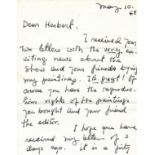 may 10.
68
Dear Herbert.
I received your
two letters with the very ex
citing news about the
show and your friends buying
my paintings. Its great! Of
course you have the reproduc
tion rights of the paintings
you bought and your friend
the editor.
I hope you have
received my letter
days ago. it is a pity